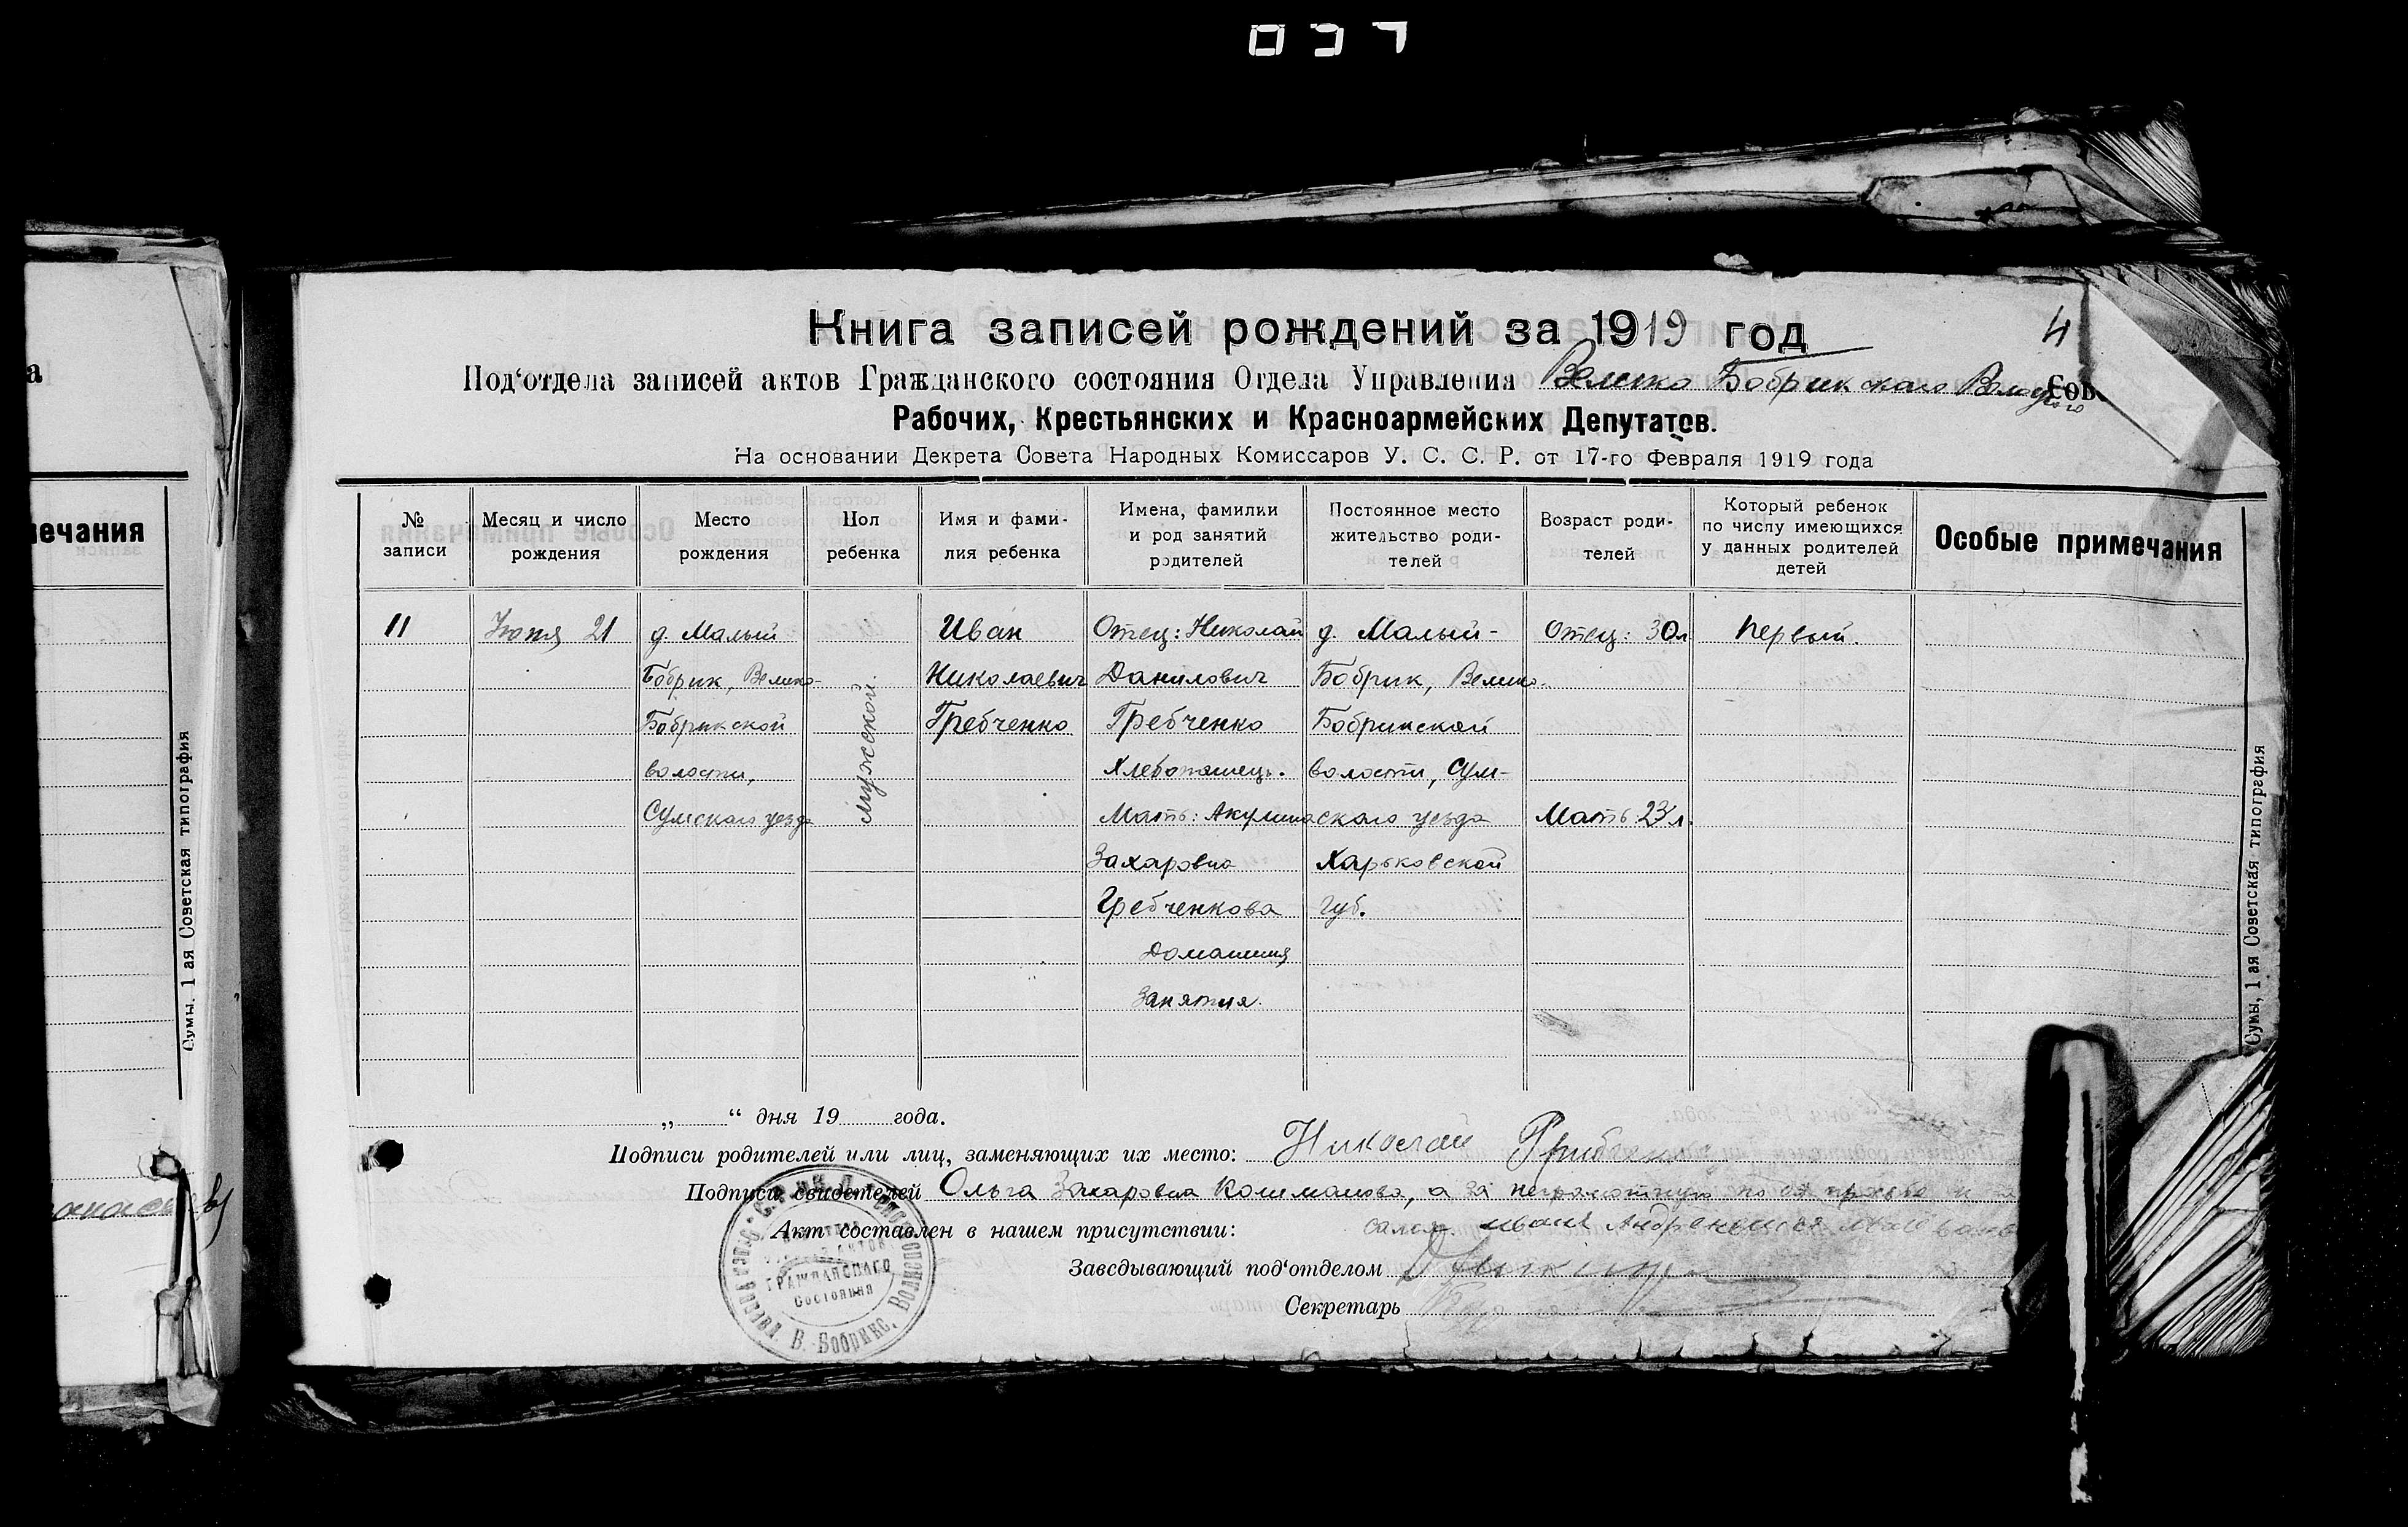 037
Книга записей рождений за 1919 год
4
Под'отдела записей актов Гражданского состояния Отдела Управления Велико Бобрикского Сов
Рабочих, Крестьянских и Красноармейских Депутатов.
На основании Декрета Совета Народных Комиссаров У. С. С. Р. от 17-го Февраля 1919 года
№ записи
Месяц и число рождения
Место рождения
Пол ребенка
Имя и фами-
лия ребенка
Имена, фамилии
и род занятий
родителей
Постоянное место
жительство роди-
телей
Возраст роди-
телей
Который ребенок
по числу имеющихся
у данных родителей
детей
Особые примечания
11
21
д. Малый
Бобрик, Велико-
Бобрикской
волости,
Сумского уезда
мужской.
Иван
Николаевич
Гребченко
Отец: Николай
Данилович
Гребченко
Хлебопашец.
Мать: Акулина
Захаровна
Гребченкова
Домашния
занятия.
д. Малый-
Бобрик, Велико-
Бобрикской
волости, Сум-
ского уезда
Харьковской
губ.
Отец: 30 л
Мать 23 л.
Первый.
„ “ дня 19 года.
Подписи родителей или лиц, заменяющих их место: Николай
Подписи свидетелей Ольга Захаровна Кошманова, а за неграмотную по ея просьбе
Акт составлен в нашем присутствии:
Заведывающий под'отделом
Секретарь
ГРАЖДАНСКАГО
Состояния
В. Бобрикс.
а
мечания
Сумы. 1 ая Советская типография
Сумы, 1 ая Советская типография